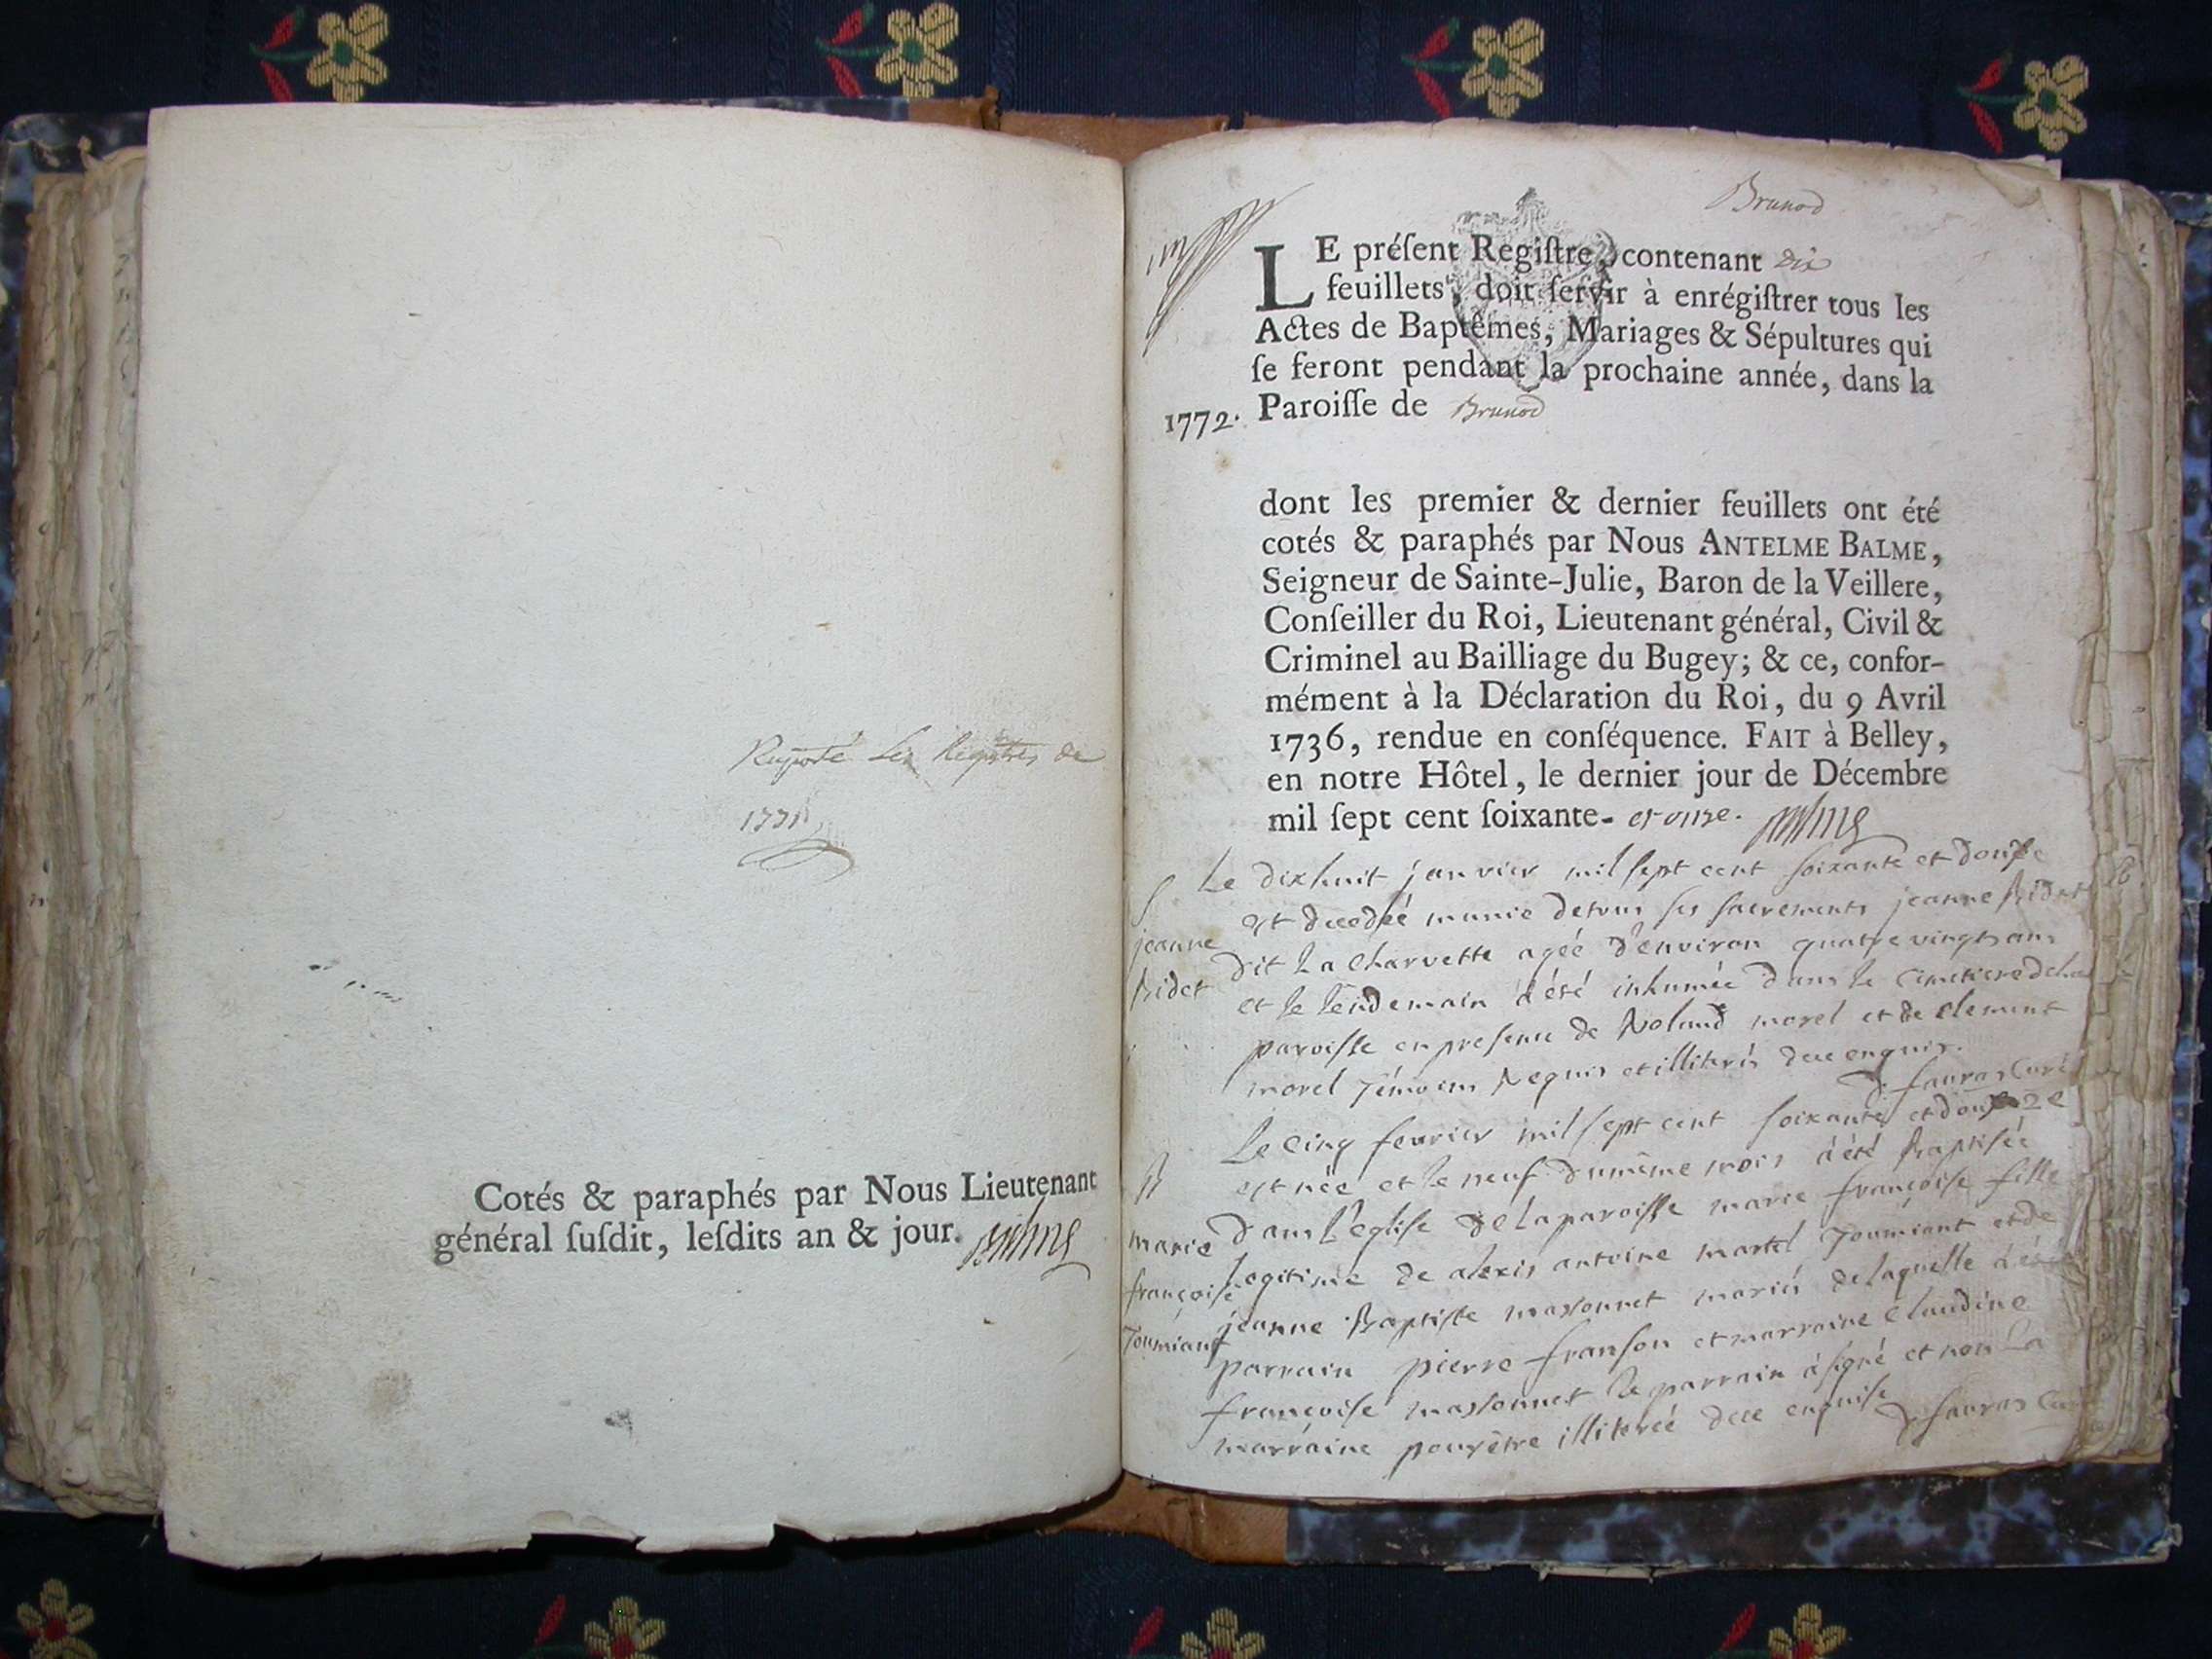 les Registres de
1771
Cotés & paraphés par Nous Lieutenant
général ſuſdit, leſdits an & jour. Balme
Brunod
LE préſent Regiſtre, contenant dix
feuillets, doit ſervir à enrégiſtrer tous les
Actes de Baptêmes, Mariages & Sépultures qui
ſe feront pendant la prochaine année, dans la
1772. Paroiſſe de Brunod
dont les premier & dernier feuillets ont été
cotés & paraphés par Nous ANTELME BALME,
Seigneur de Sainte-Julie, Baron de la Veillere,
Conſeiller du Roi, Lieutenant général, Civil &
Criminel au Bailliage du Bugey; & ce, confor-
mément à la Déclaration du Roi, du 9 Avril
1736, rendue en conſéquence. FAIT à Belley,
en notre Hôtel, le dernier jour de Décembre
mil ſept cent ſoixante- et onze. Balme
S
jeanne
Bidet
Le dixhuit janvier mil ſept cent ſoixante et douze
est decedée munie de tous ſes ſacrements jeanne Bidet
dit La Charvette agée d'environ quatre vingts ans
et le lendemain à été inhumée dans le cimetiere de la
paroiſſe en preſence de Roland morel et de clement
morel témoins requis et illiterés de ce enquis.
D. fauras Curé
B
marie
françoiſe
Toumiant
Le cinq fevrier mil ſept cent ſoixante et douze
est née et le neuf du même mois à été Baptiſée
dans l'égliſe de la paroiſſe marie françoiſe fille
legitime de alexis antoine martel Toumiant et de
jeanne Baptiſte maſſonnet mariés de laquelle à été
parrain pierre franſon et marraine claudine
françoiſe maſſonnet le parrain à ſigné et non la
marraine pour être illiterée de ce enquiſe
D. fauras Curé